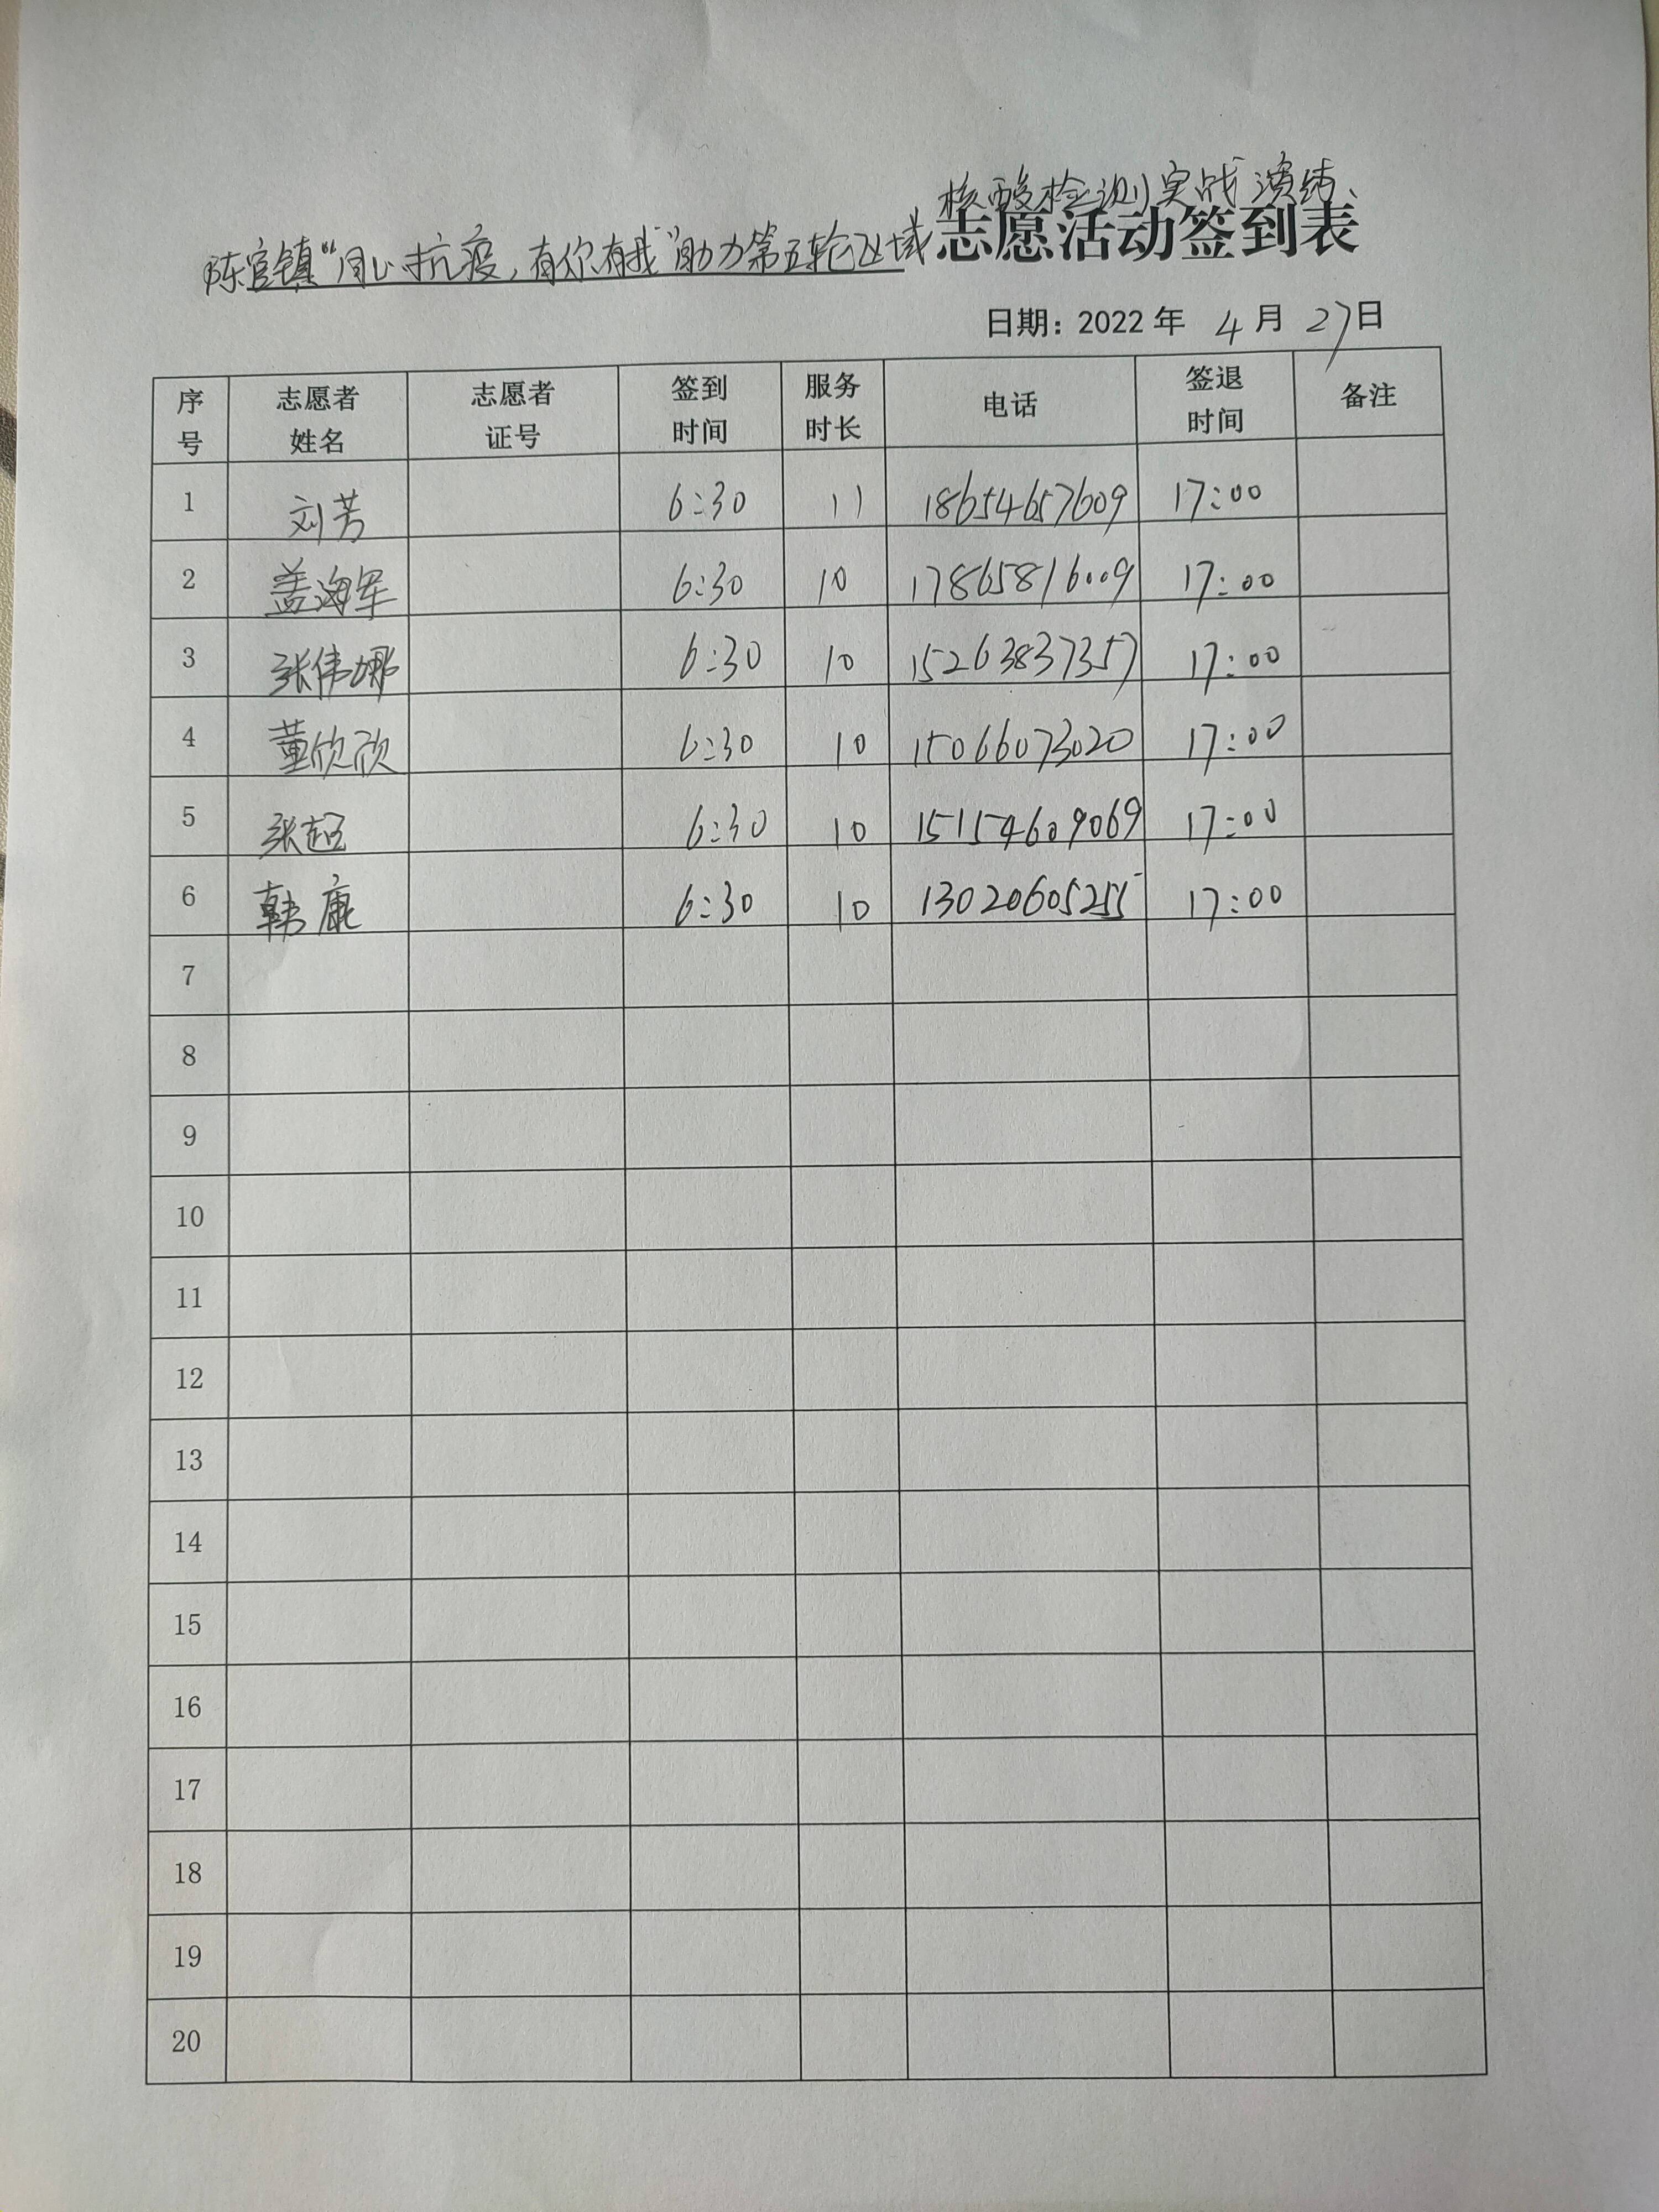 核酸检测实战演练
陈官镇“同心抗疫,有你有我”助力第五轮区域志愿活动签到表
日期：2022 年 4 月 27日
序号 志愿者姓名 志愿者证号 签到时间 服务时长 电话 签退时间 备注
1 刘芳 6:30 11 18654657609 17:00
2 盖海军 6:30 10 17865816009 17:00
3 张伟娜 6:30 10 15263837357 17:00
4 董欣欣 6:30 10 15066073020 17:00
5 张超 6:30 10 15154609069 17:00
6 韩康 6:30 10 13020605255 17:00
7
8
9
10
11
12
13
14
15
16
17
18
19
20